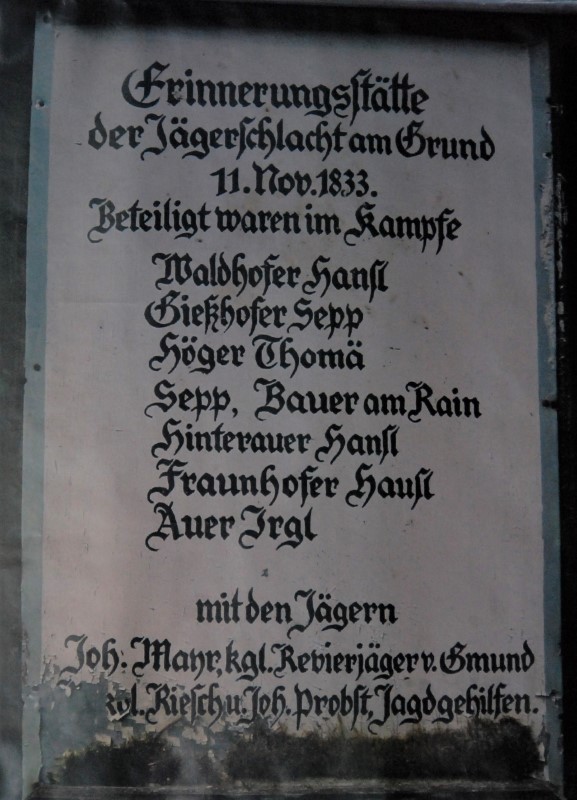 Erinnerungsstätte
der Jägerschlacht am Grund
11. Nov. 1833.
Beteiligt waren im Kampfe
Waldhofer Hansl
Gießhofer Sepp
Höger Thomä
Sepp, Bauer am Rain
Hinterauer Hansl
Fraunhofer Hausl
Auer Irgl
mit den Jägern
Joh. Mayr, kgl. Revierjäger v. Gmund
Riesch u. Joh. Probst, Jagdgehilfen.